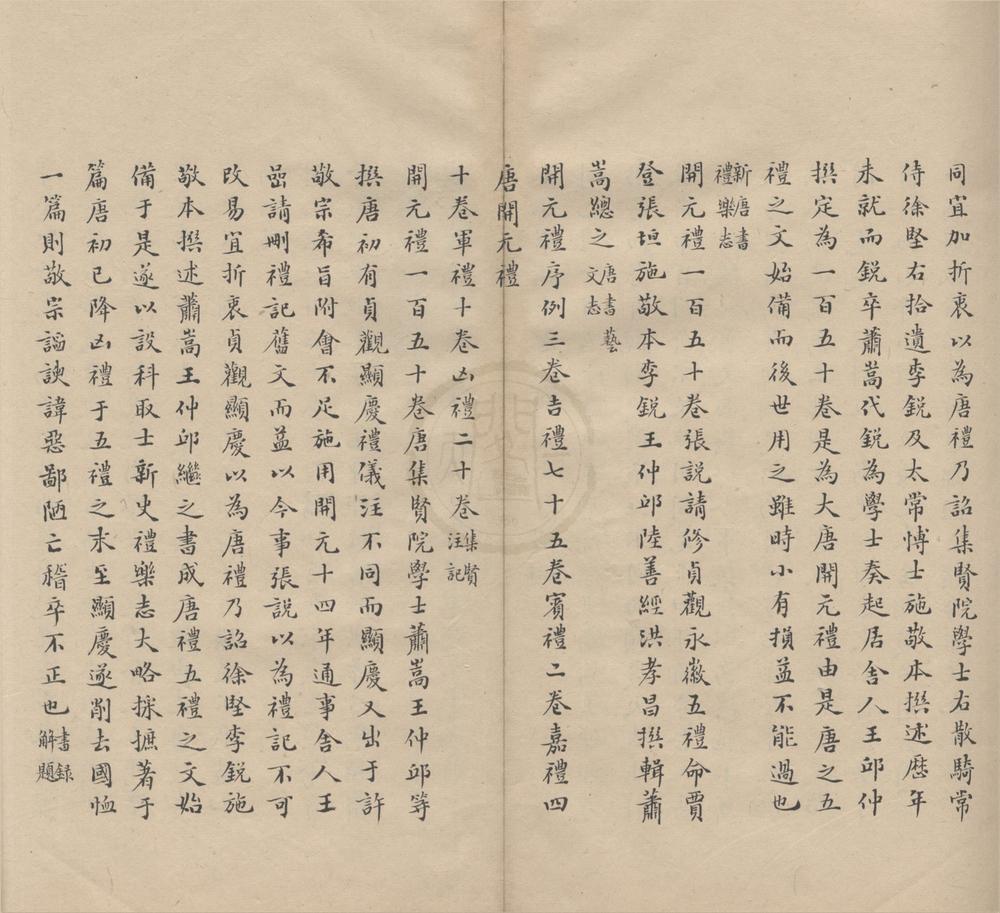 同宜加折衷以為唐禮乃詔集賢院學士右散騎常
侍徐堅右拾遺李銳及太常博士施敬本撰述歷年
未就而銳卒蕭嵩代銳為學士奏起居舍人王邱仲
撰定為一百五十卷是為大唐開元禮由是唐之五
禮之文始備而後世用之雖時小有損益不能過也
新唐書
禮樂志
開元禮一百五十卷張說請修貞觀永徽五禮命賈
登張垣施敬本李銳王仲邱陸善經洪孝昌撰輯蕭
嵩總之唐書藝
文志
開元禮序例三卷吉禮七十五卷賓禮二卷嘉禮四
唐開元禮
十卷軍禮十卷凶禮二十卷集賢
注記
開元禮一百五十卷唐集賢院學士蕭嵩王仲邱等
撰唐初有貞觀顯慶禮儀注不同而顯慶又出于許
敬宗希旨附會不足施用開元十四年通事舍人王
嵒請刪禮記舊文而益以今事張說以為禮記不可
改易宜折衷貞觀顯慶以為唐禮乃詔徐堅李銳施
敬本撰述蕭嵩王仲邱繼之書成唐禮五禮之文始
備于是遂以設科取士新史禮樂志大略採摭著于
篇唐初已降凶禮于五禮之末至顯慶遂削去國恤
一篇則敬宗謟諛諱惡鄙陋亡稽卒不正也書録
解題